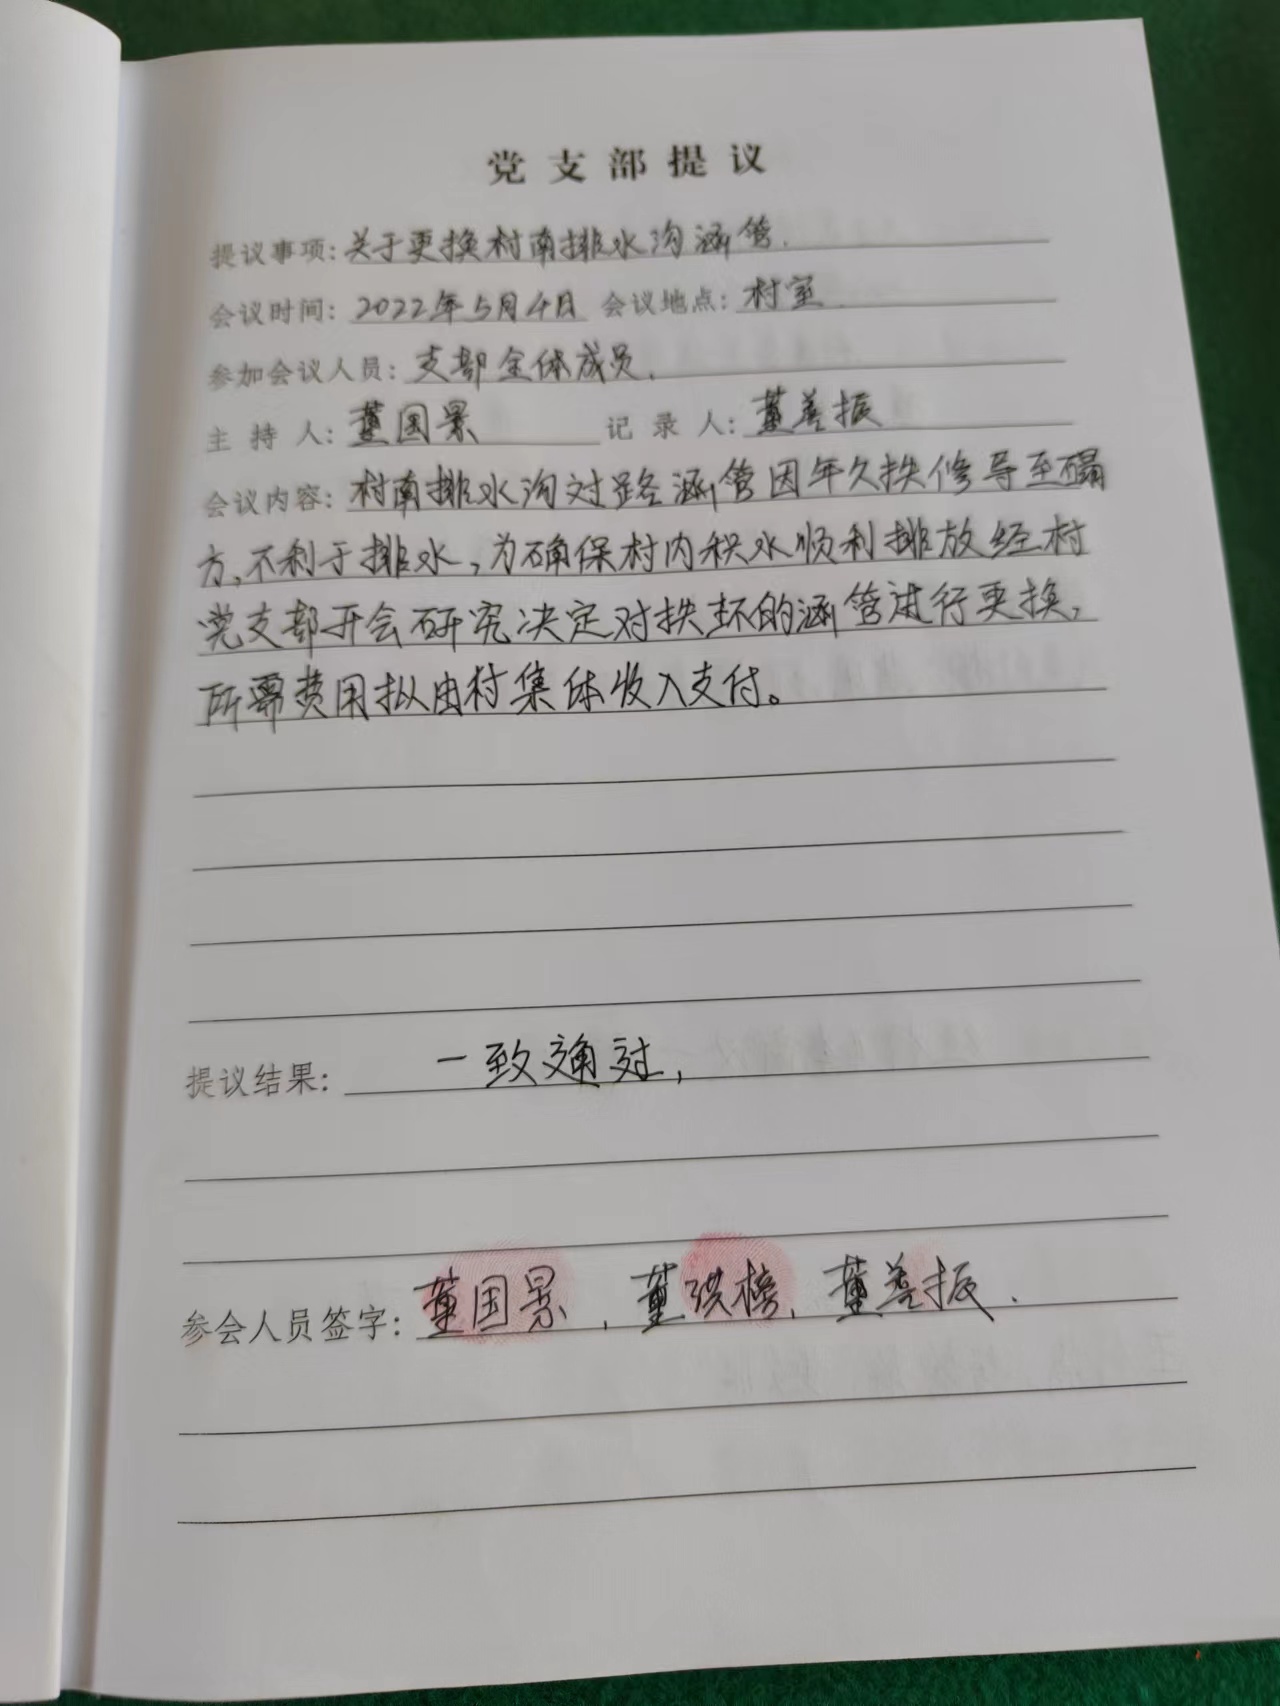 党支部提议
提议事项:关于更换村南排水沟涵管.
会议时间:2022年5月4日 会议地点:村室
参加会议人员:支部全体成员.
主持人:董国景 记录人:董善振
会议内容:村南排水沟过路涵管因年久失修导至塌
方,不利于排水,为确保村内积水顺利排放经村
党支部开会研究决定对损坏的涵管进行更换,
所需费用拟由村集体收入支付。
提议结果:一致通过,
参会人员签字:董国景,董洪榜,董善振.